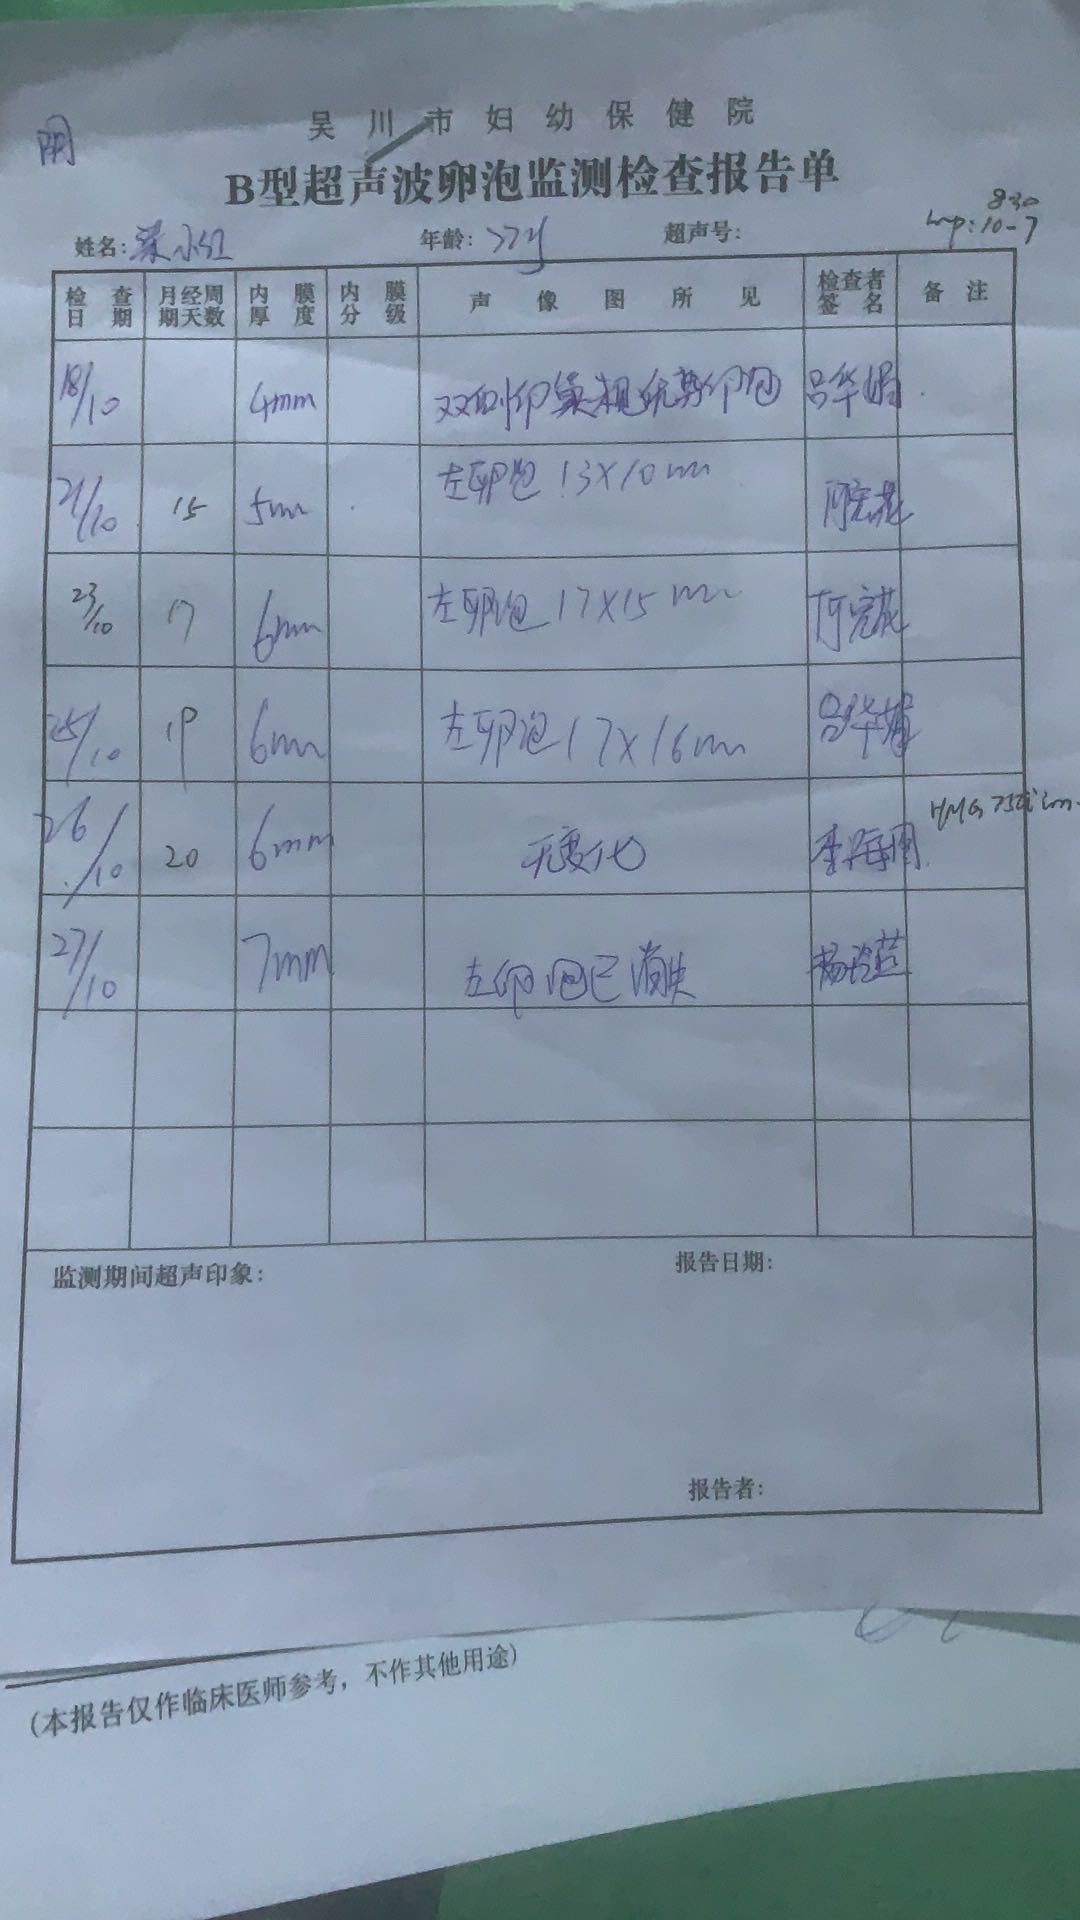 阴
吴川市妇幼保健院
B型超声波卵泡监测检查报告单
830
姓名: 年龄: 超声号: Lmp:10-7
检查日期 月经周期天数 内膜厚度 内膜分级 声像图所见 检查者签名 备注
18/10 4mm 双侧卵巢 优势卵泡 吕华娟
21/10 15 5mm 左卵泡 13×10mm
23/10 17 6mm 左卵泡 17×15mm
25/10 19 6mm 左卵泡 17×16mm 吕华娟
26/10 20 6mm 无变化 HMG 75
27/10 7mm 左卵泡已消失
监测期间超声印象: 报告日期:
报告者:
(本报告仅作临床医师参考，不作其他用途)